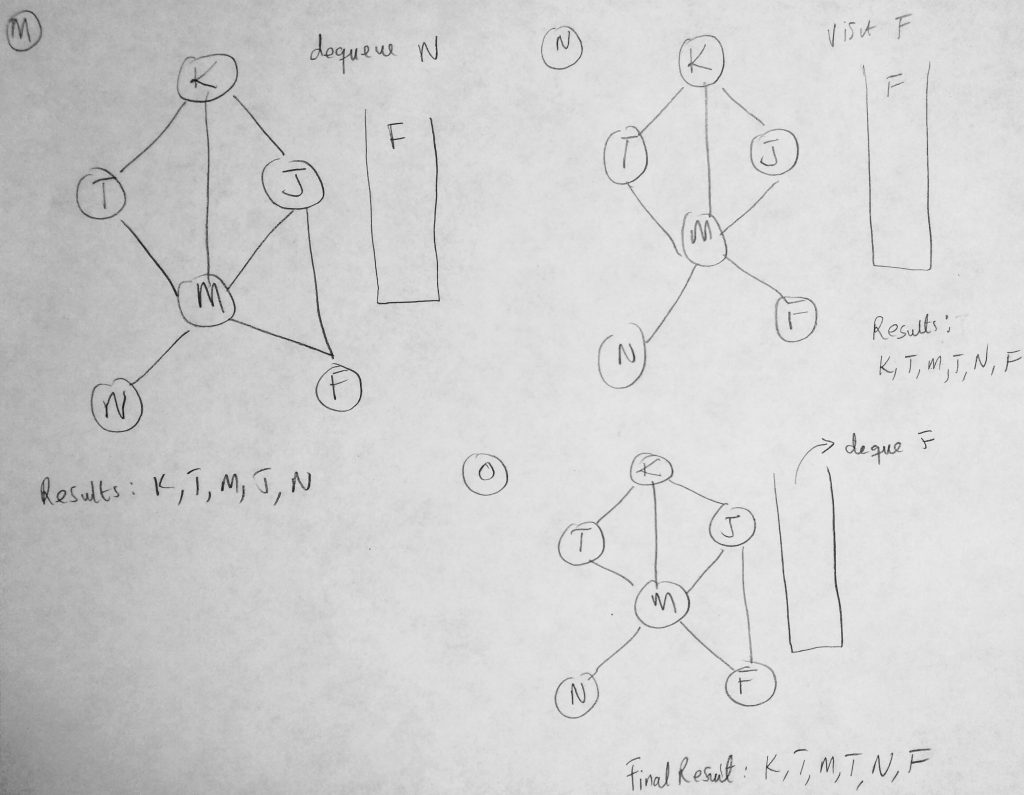 M
dequeue N
K
F
T
J
M
N
F
Results: K, T, M, J, N
N
Visit F
K
F
T
J
M
F
N
Results:
K, T, M, J, N, F
O
deque F
K
T
J
M
N
F
Final Result: K, T, M, J, N, F